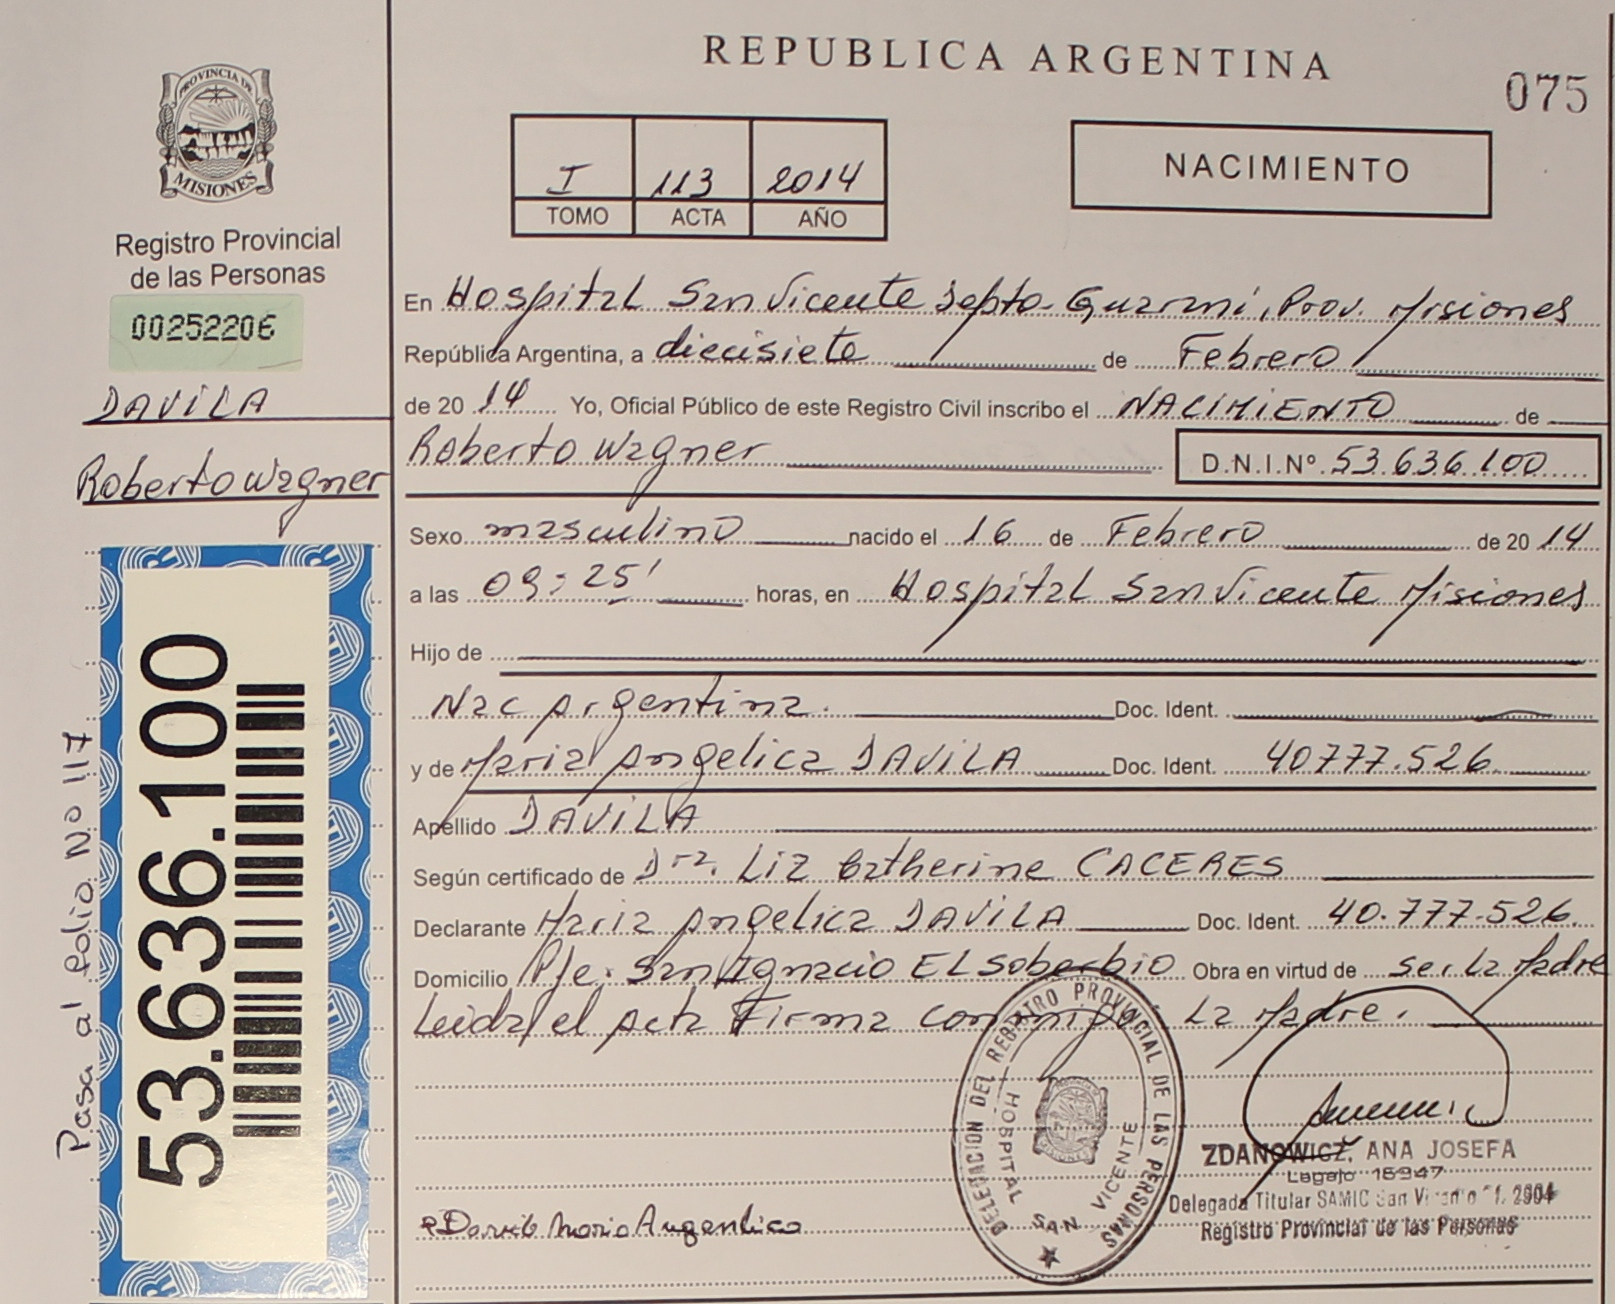 REPUBLICA ARGENTINA
075
PROVINCIA DE
MISIONES
Registro Provincial
de las Personas
00252206
DAVILA
Roberto Wagner
53.636.100
Pasa al folio Nº 117
I 113 2014
TOMO ACTA AÑO
NACIMIENTO
En Hospital San Vicente Depto. Guarani, Prov. Misiones
República Argentina, a diecisiete de Febrero
de 20 14 Yo, Oficial Público de este Registro Civil inscribo el NACIMIENTO de
Roberto Wagner D.N.I.Nº 53.636.100
Sexo masculino nacido el 16 de Febrero de 20 14
a las 09:25' horas, en Hospital San Vicente Misiones
Hijo de
Nac Argentina. Doc. Ident.
y de Maria Angelica DAVILA Doc. Ident. 40777.526
Apellido DAVILA
Según certificado de Dra. Liz Catherine CACERES
Declarante Maria Angelica DAVILA Doc. Ident. 40.777.526
Domicilio Pje. San Ignacio El Soberbio Obra en virtud de ser La Madre
Leida el Acta Firma conmigo La Madre.
DELEGACION DEL REGISTRO PROVINCIAL DE LAS PERSONAS
HOSPITAL SAN VICENTE
ZDANOWICZ, ANA JOSEFA
Legajo 16947
Delegada Titular SAMIC San
Registro Provincial de las Personas